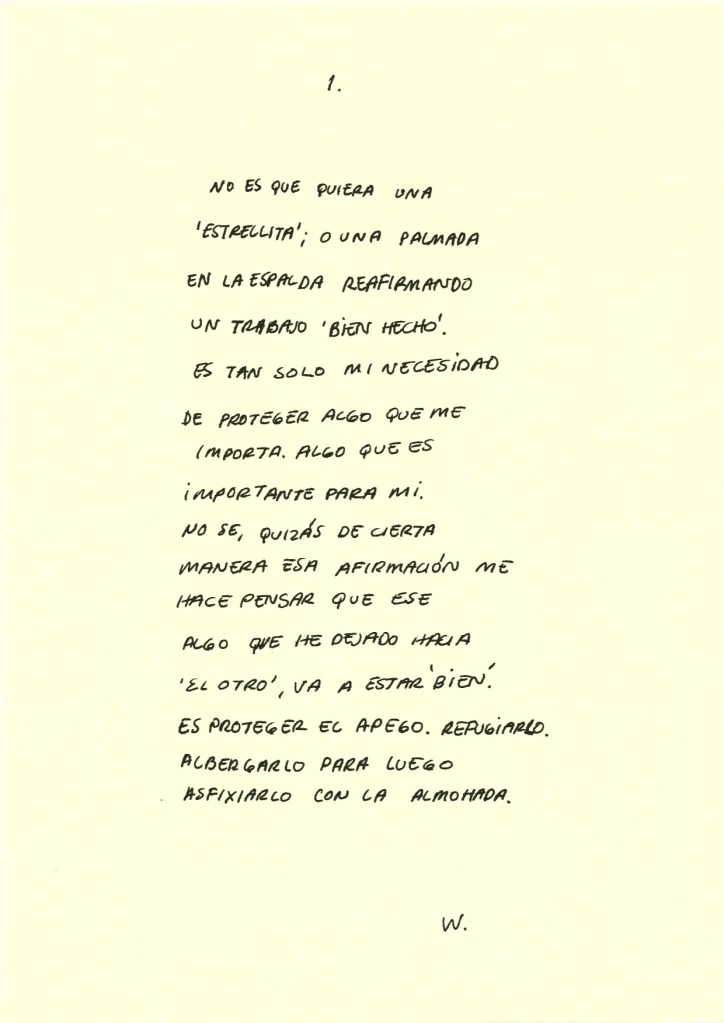 1.
NO ES QUE QUIERA UNA
'ESTRELLITA'; O UNA PALMADA
EN LA ESPALDA REAFIRMANDO
UN TRABAJO 'BIEN HECHO'.
ES TAN SOLO MI NECESIDAD
DE PROTEGER ALGO QUE ME
IMPORTA. ALGO QUE ES
IMPORTANTE PARA MI.
NO SE, QUIZÁS DE CIERTA
MANERA ESA AFIRMACIÓN ME
HACE PENSAR QUE ESE
ALGO QUE HE DEJADO HACIA
'EL OTRO', VA A ESTAR 'BIEN'.
ES PROTEGER EL APEGO. REFUGIARLO.
ALBERGARLO PARA LUEGO
ASFIXIARLO CON LA ALMOHADA.
W.